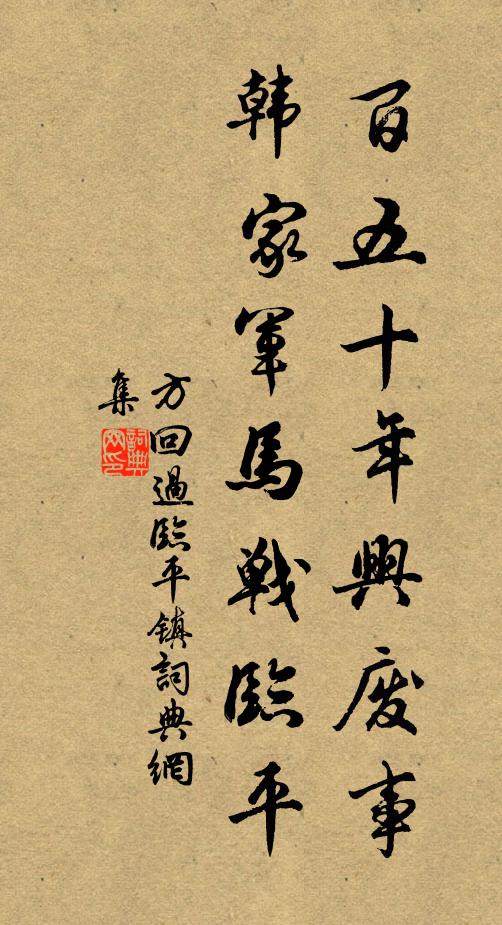 百五十年興废事
韩家軍馬戰臨平
方回過臨平镇詞典網
集
詞典網印